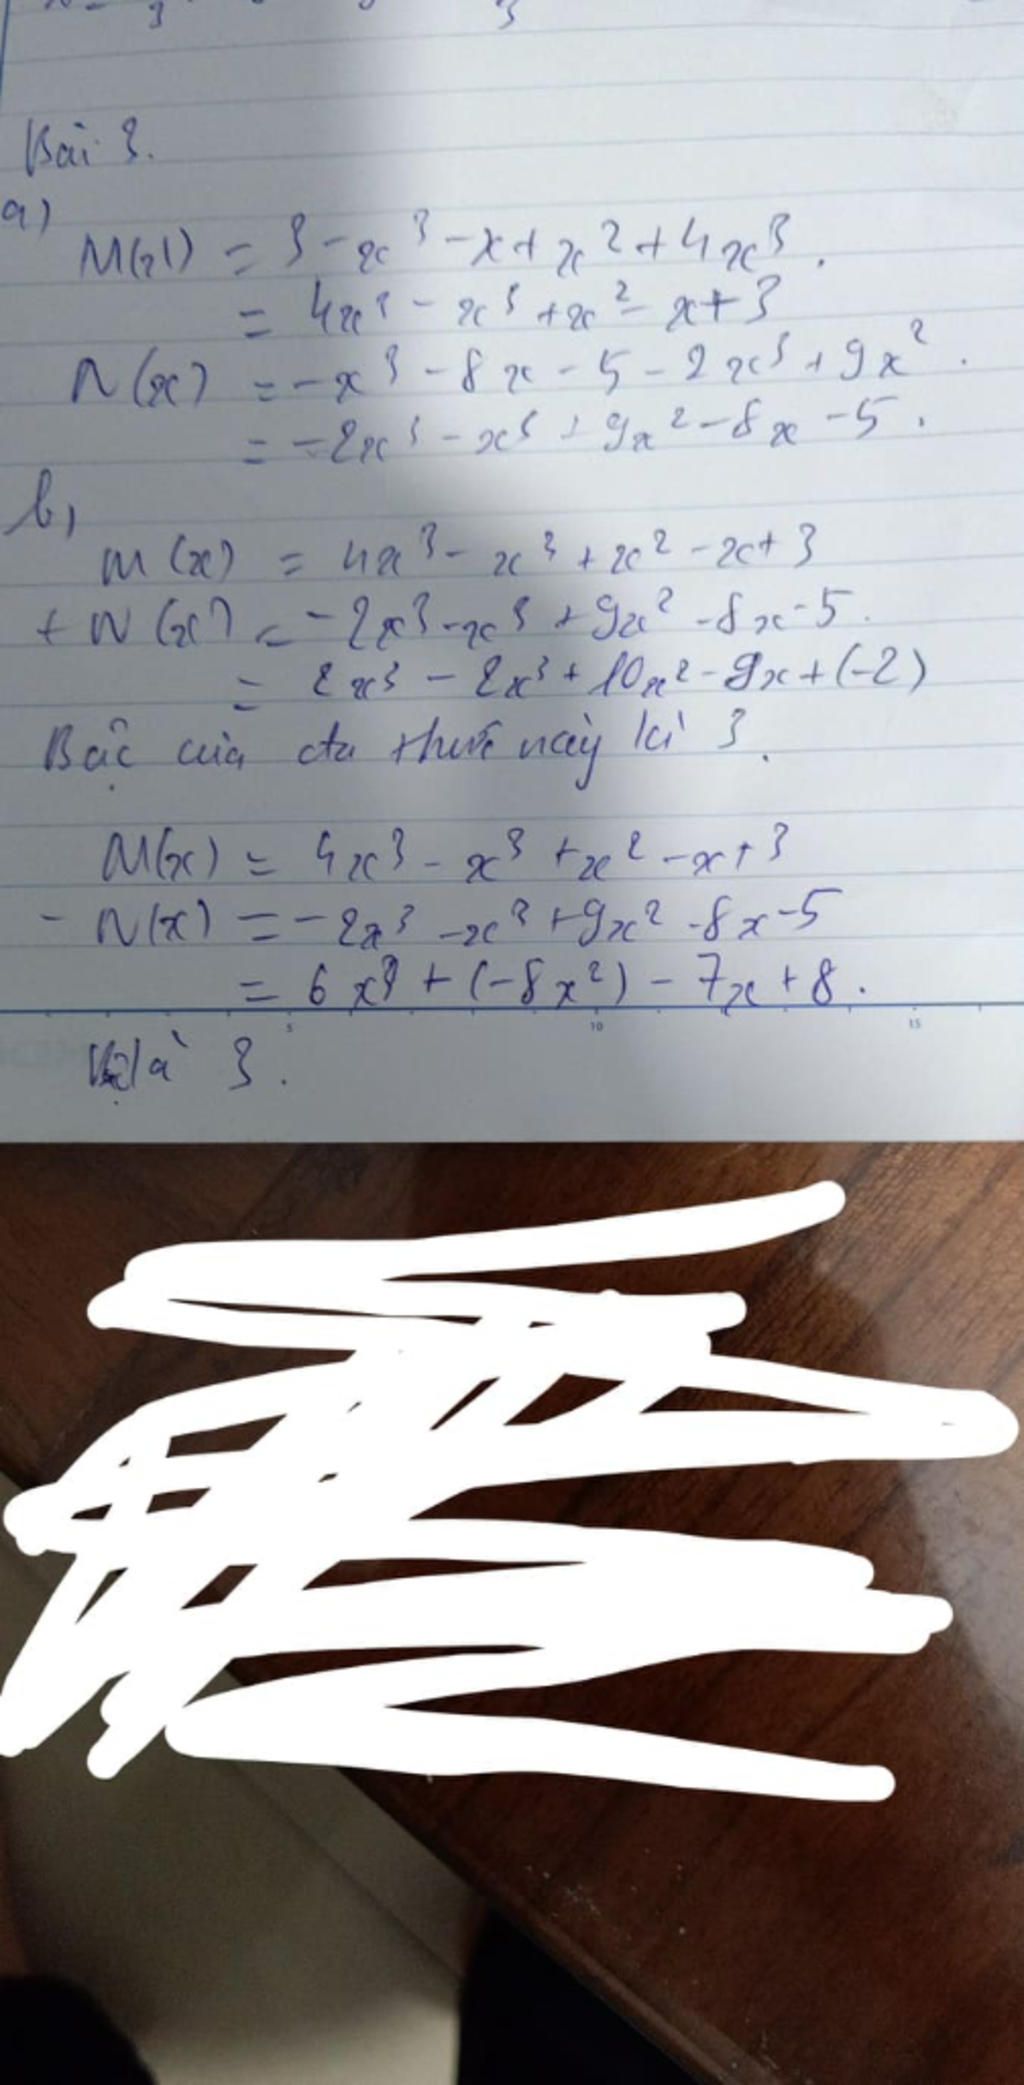 Bài 3.
a)
M(x) = 3 - x³ - x + x² + 4x³.
= 4x³ - x³ + x² - x + 3
N(x) = -x³ - 8x - 5 - 2x³ + 9x².
= -2x³ - x³ + 9x² - 8x - 5.
b,
M(x) = 4x³ - x³ + x² - x + 3
+ N(x) = -2x³ - x³ + 9x² - 8x - 5.
= 2x³ - 2x³ + 10x² - 9x + (-2)
Bậc của đa thức này là 3.
M(x) = 4x³ - x³ + x² - x + 3
- N(x) = -2x³ - x³ + 9x² - 8x - 5
= 6x³ + (-8x²) - 7x + 8.
5 10 15
là 3.